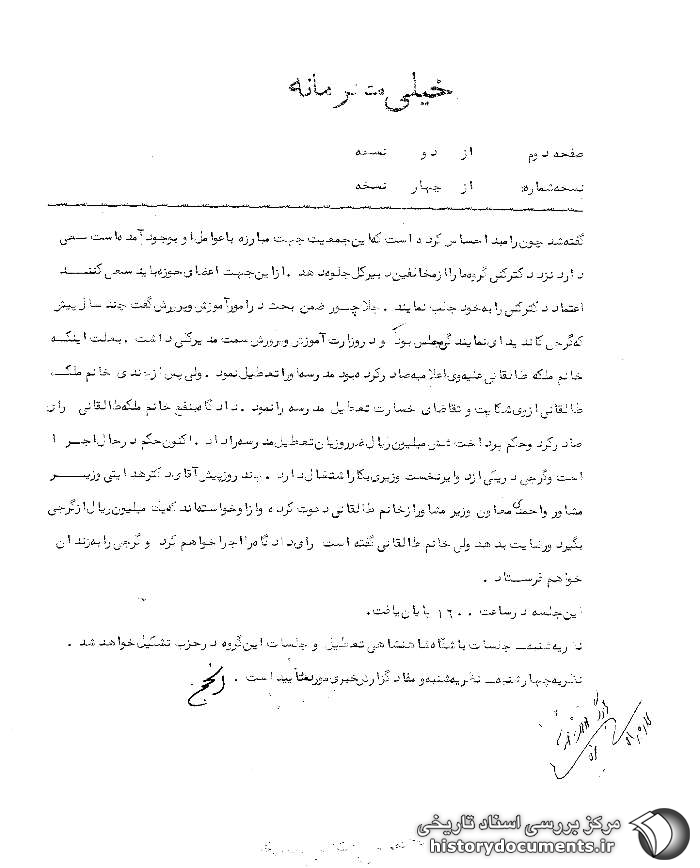 خیلی محرمانه
صفحه دوم از دو نسخه
نسخه شماره: از چهار نسخه
گفته شد چون رامبد احساس کرده است که این جمعیت جهت مبارزه با عوامل او بوجود آمده است سعی
دارد نزد دکتر کنی گروه ما را از مخالفین دبیرکل جلوه دهد . از این جهت اعضای حوزه باید سعی کنند
اعتماد دکتر کنی را به خود جلب نمایند . جلاچور ضمن بحث در امور آموزش و پرورش گفت چند سال پیش
که گرجی کاندیدای نمایندگی مجلس بود و در وزارت آموزش و پرورش سمت مدیرکلی داشت . بعلت اینکه
خانم ملکه طالقانی علیه وی اعلامیه صادر کرده بود مدرسه او را تعطیل نمود . ولی پس از چندی خانم ملکه
طالقانی از وی شکایت و تقاضای خسارت تعطیل مدرسه را نمود . دادگاه بنفع خانم ملکه طالقانی رای
صادر کرد و حکم پرداخت شش میلیون ریال ضرر و زیان تعطیل مدرسه را داد . اکنون حکم در حال اجرا
است و گرجی در یکی از دوایر نخست وزیری بکار اشتغال دارد . چند روز پیش آقای دکتر هدایتی وزیر
مشاور و احمدی معاون وزیر مشاور از خانم طالقانی دعوت کرده و از او خواسته‌اند که یک میلیون ریال از گرجی
بگیرد و رضایت بدهد ولی خانم طالقانی گفته است رای دادگاه را اجرا خواهم کرد و گرجی را به زندان
خواهم فرستاد .
این جلسه در ساعت ۱۶۰۰ پایان یافت.
نظریه شنبه ـ جلسات باشگاه شاهنشاهی تعطیل و جلسات این گروه در حزب تشکیل خواهد شد .
نظریه چهارشنبه ـ نظریه شنبه و مفاد گزارش خبری مورد تأیید است .
مرکز بررسی اسناد تاریخی
historydocuments.ir